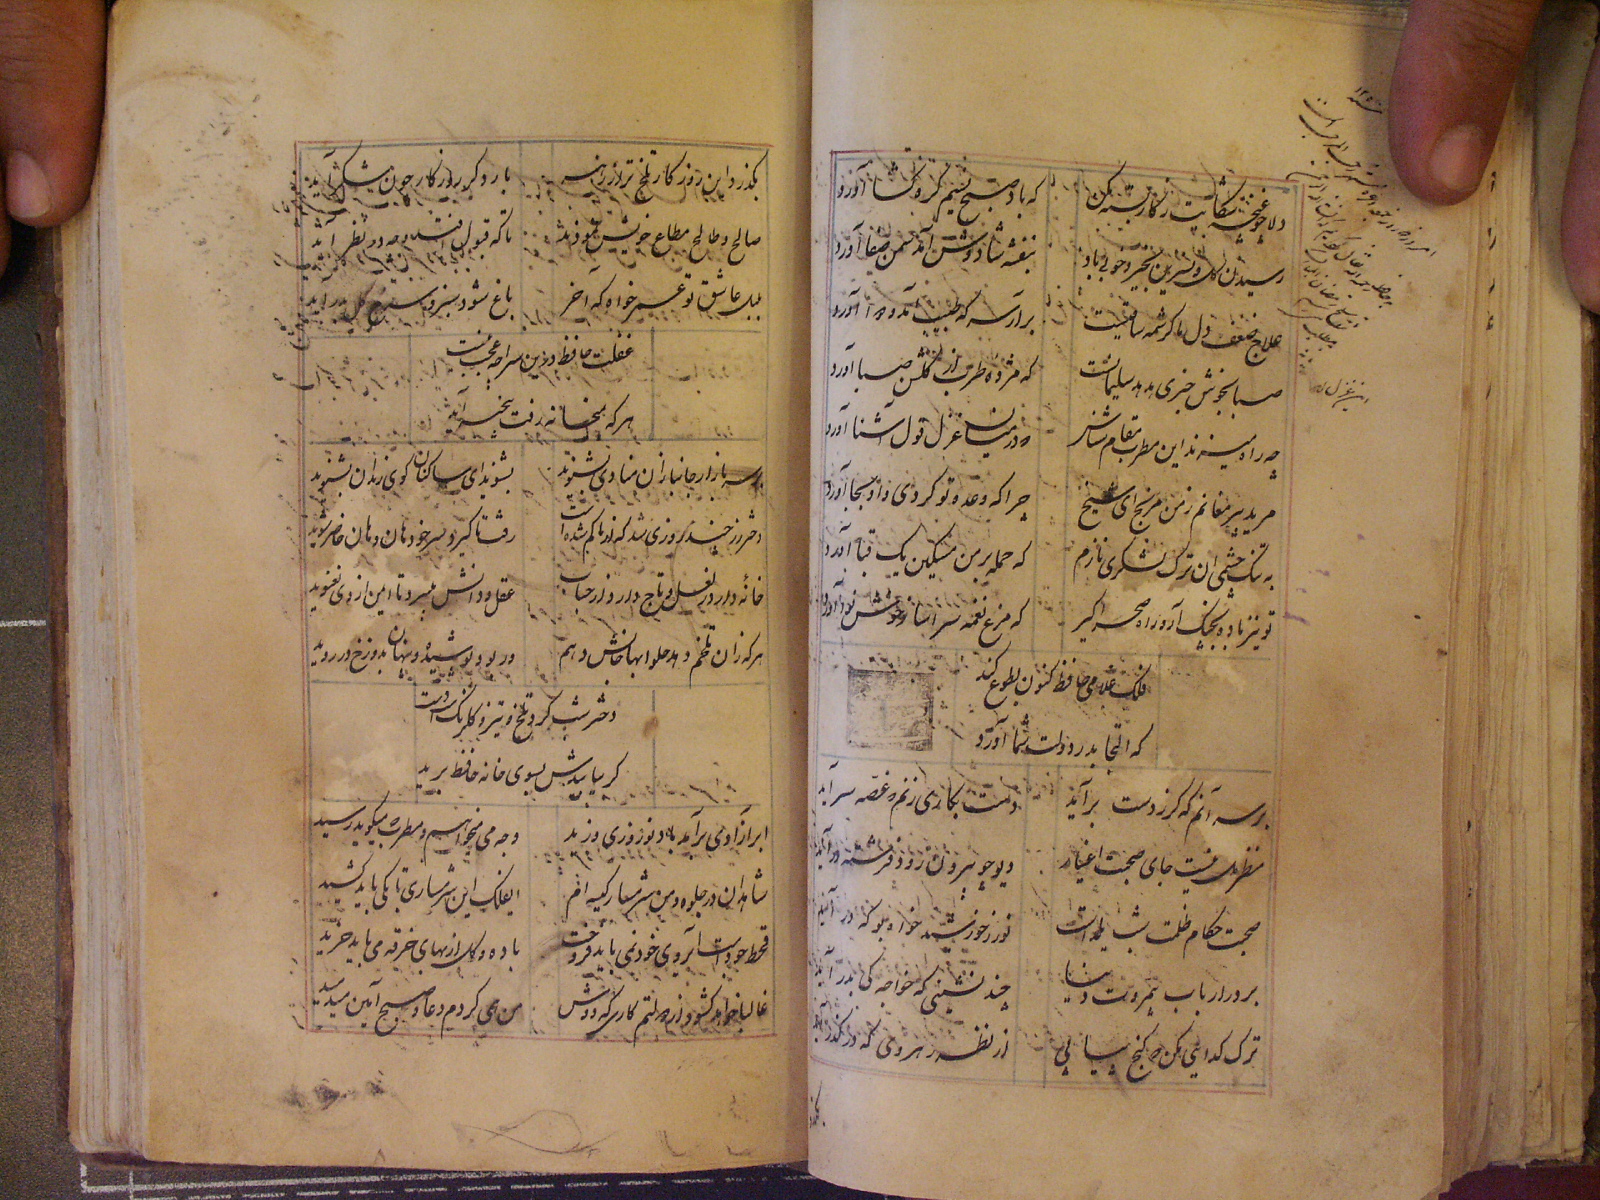 دلا چو غنچه شکایت ز کار بسته مکن که باد صبح نسیم گره گشا آورد
رسیدن گل و نسرین بخیر و خوبی باد بنفشه شاد و خوش آمد سمن صفا آورد
علاج ضعف دل ما کرشمه ساقیست برآر سر که طبیب آمد و دوا آورد
صبا بخوش خبری هدهد سلیمانست که مژده طرب از گلشن صبا آورد
چه راه میزند این مطرب مقام شناس که در میان غزل قول آشنا آورد
مرید پیر مغانم ز من مرنج ای شیخ چرا که وعده تو کردی و او بجا آورد
به تنگ چشمی آن ترک لشکری نازم که حمله بر من مسکین یک قبا آورد
تو نیز باده بچنگ آر و راه صحرا گیر که مرغ نغمه سرا ساز خوش نوا آورد
فلک غلامی حافظ کنون بطوع کند
که التجا بدر دولت شما آورد
بر سر آنم که گر ز دست برآید دست بکاری زنم که غصه سر آید
منظر دل نیست جای صحبت اغیار دیو چو بیرون رود فرشته درآید
صحبت حکام ظلمت شب یلداست نور ز خورشید خواه بو که برآید
بر در ارباب بیمروت دنیا چند نشینی که خواجه کی بدر آید
ترک گدایی مکن که گنج بیابی از نظر رهروی که در گذر آید
بگذرد
بگذرد این روزگار تلخ تر از زهر بار دگر روزگار چون شکر آید
صالح و طالح متاع خویش نمودند تا که قبول افتد و چه در نظر آید
بلبل عاشق تو عمر خواه که آخر باغ شود سبز و سرخ گل ببر آید
غفلت حافظ درین سراچه عجب نیست
هر که بمیخانه رفت بیخبر آید
بر سر بازار جانبازان منادی بشنوید بشنوید ای ساکنان کوی رندان بشنوید
دختر رز چند روزی شد که از ما گم شده است رفت تا گیرد سر خود هان و هان حاضر شوید
خانه دارد ز لعل و تاج دارد از حباب عقل و دانش میبرد تا ایمن از وی نغنوید
هر که زان تلخم دهد حلوا بها جانش دهم ور بود پوشیده و پنهان بدوزخ در روید
دختر شب گرد تلخ و تیز و گلرنگ است و مست
گر بیابیدش بسوی خانه حافظ برید
ابر آزادی برآمد باد نوروزی وزید وجه می میخواهم و مطرب که میگوید رسید
شاهدان در جلوه و من شرمسار کیسه ام ای فلک این شرمساری تا بکی باید کشید
قحط جود است آبروی خود نمی باید فروخت باده و گل از بهای خرقه می باید خرید
غالبا خواهد گشود از دولتم کاری که دوش من همی کردم دعا و صبح آمین میدمید